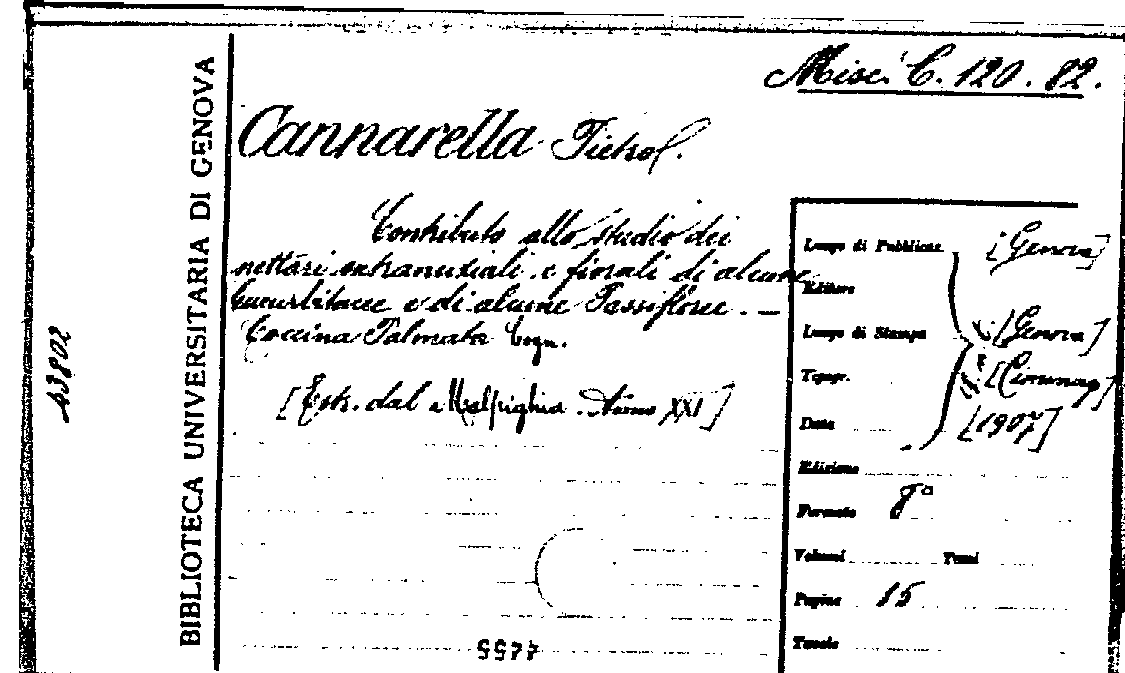 Misc. C. 120. 82.
Cannarella Pietro.
Contributo allo studio dei
nettari extranuziali e fiorali di alcune
Cucurbitacee e di alcune Passifloree. —
Coccinia Palmata Cogn.
[Estr. dal Malpighia. Anno XXI]
BIBLIOTECA UNIVERSITARIA DI GENOVA
43802
Luogo di Pubblicaz. [Genova]
Editore
Luogo di Stampa [Genova]
Tipogr.
Data [1907]
Edizione
Formato 8°
Volumi Tomi
Pagine 15
Tavole